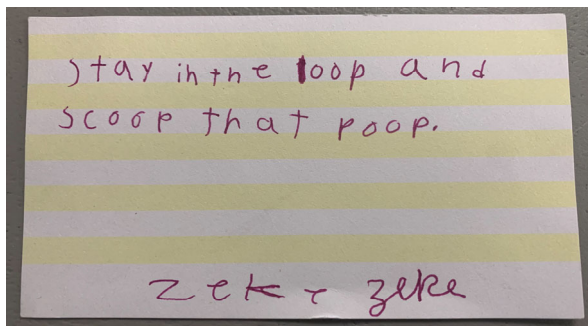 Stay in the loop and
scoop that poop.
zeke zeke